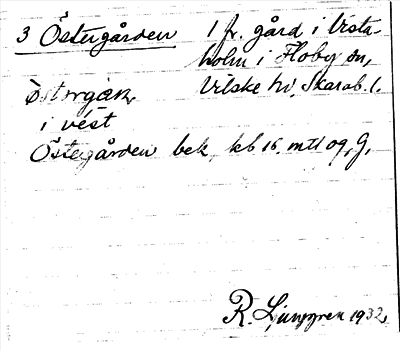 3 Östergården 1 fr. gård i Vista-
holm i Floby sn,
Vilske hd, Skarab. l.
i vést
Östergården bek. kb 15. mtl og, G,
R. Ljunggren 1932,